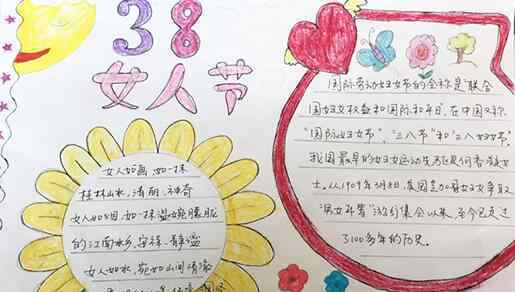 38
女人节
女人如画,如一抹
桂林山水,清丽、神奇
女人如烟,如一抹温婉朦胧
的江南水乡,安祥、静谧
女人如水,宛如山间清澈
国际劳动妇女节的全称是"联合
国妇女权益和国际和平日,在中国又称
"国际妇女节"、"三八节"和"三八妇女节",
我国最早的妇女运动
士,从1909年3月8日,美国芝加哥妇女争取
"男女平等"游行集会以来,至今已走过
3100多年的历史。